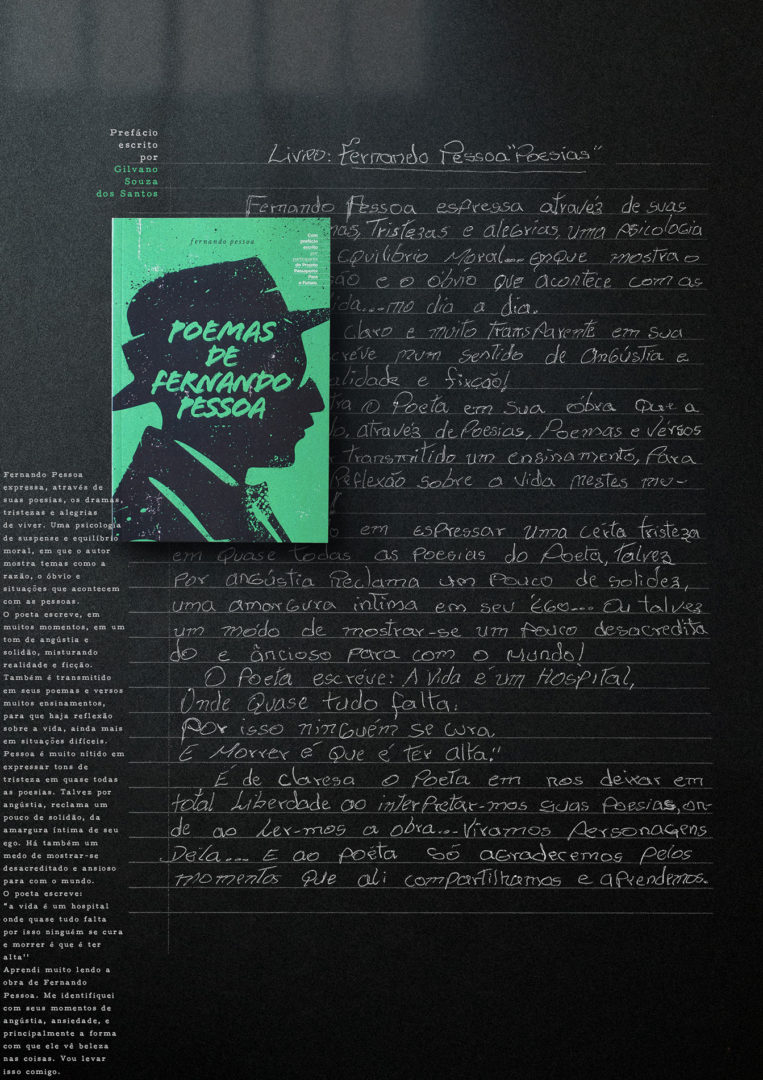 Prefácio
escrito
por
Gilvano
Souza
dos Santos
Livro: Fernando Pessoa "Poesias"
Fernando Pessoa espressa atravéz de suas
mas, Tristezas e alegrias, uma Psicologia
Equilibrio Moral... Emque mostra o
são e o obvio que acontece com as
ida... no dia a dia.
Claro e muito transparente em sua
creve num sentido de angústia e
alidade e fixção!
tra o Poeta em sua óbra que a
o, atravéz de Poesias, Poemas e versos
transmitido um ensinamento, para
Reflexão sobre a vida nestes mo-
!
em espressar uma certa tristeza
em quase todas as poesias do Poeta, talvez
por angústia reclama um pouco de solidez,
uma amargura intima em seu Ego... Ou talvez
um modo de mostrar-se um pouco desacredita
do e âncioso para com o mundo!
O Poeta escreve: A vida é um Hospital,
Onde quase tudo falta.
Por isso ninguém se cura
E Morrer é que é ter alta."
É de claresa o Poeta em nos deixar em
total Liberdade ao interpretar-mos suas Poesias, on-
de ao Ler-mos a obra... Viramos Personagens
Dela... E ao poéta só agradecemos pelos
momentos que ali compartilhamos e aprendemos.
fernando pessoa
Com
prefácio
escrito
por
participante
do Projeto
Passaporte
Para
o Futuro.
POEMAS
DE
FERNANDO
PESSOA
Fernando Pessoa
expressa, através de
suas poesias, os dramas,
tristezas e alegrias
de viver. Uma psicologia
de suspense e equilíbrio
moral, em que o autor
mostra temas como a
razão, o óbvio e
situações que acontecem
com as pessoas.
O poeta escreve, em
muitos momentos, em um
tom de angústia e
solidão, misturando
realidade e ficção.
Também é transmitido
em seus poemas e versos
muitos ensinamentos,
para que haja reflexão
sobre a vida, ainda mais
em situações difíceis.
Pessoa é muito nítido em
expressar tons de
tristeza em quase todas
as poesias. Talvez por
angústia, reclama um
pouco de solidão, da
amargura íntima de seu
ego. Há também um
medo de mostrar-se
desacreditado e ansioso
para com o mundo.
O poeta escreve:
"a vida é um hospital
onde quase tudo falta
por isso ninguém se cura
e morrer é que é ter
alta''
Aprendi muito lendo a
obra de Fernando
Pessoa. Me identifiquei
com seus momentos de
angústia, ansiedade, e
principalmente a forma
com que ele vê beleza
nas coisas. Vou levar
isso comigo.